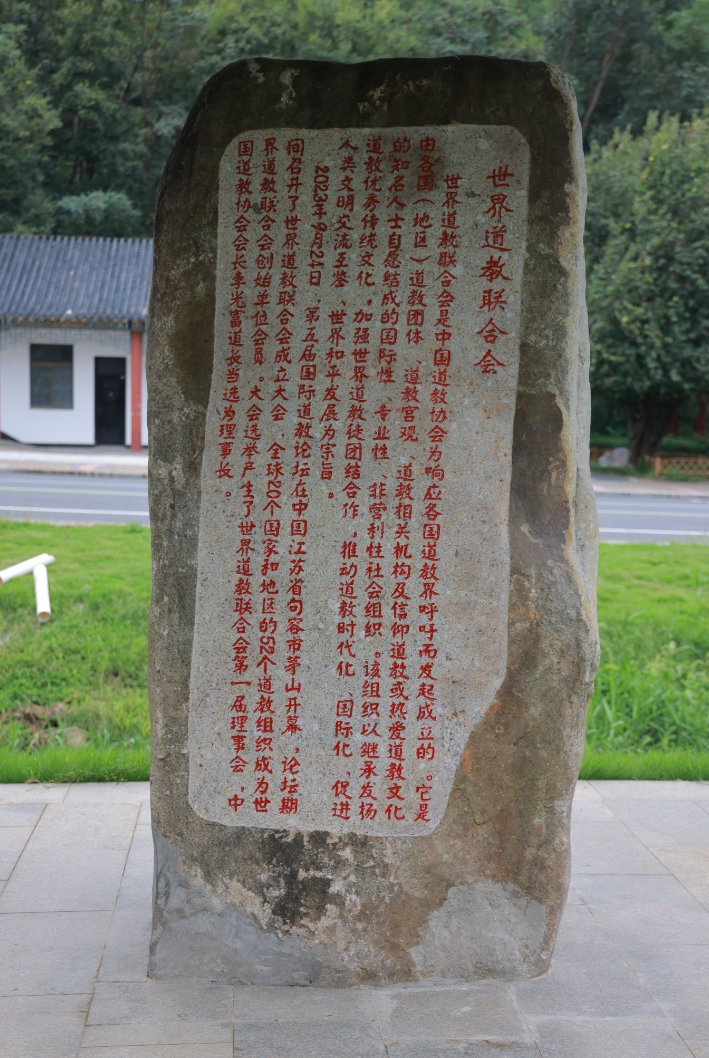 世界道教联合会
世界道教联合会是中国道教协会为响应各国道教界呼吁而发起成立的。它是
由各国（地区）道教团体、道教宫观、道教相关机构及信仰道教或热爱道教文化
的知名人士自愿结成的国际性、专业性、非营利性社会组织。该组织以继承发扬
道教优秀传统文化，加强世界道教徒团结合作，推动道教时代化、国际化，促进
人类文明交流互鉴、世界和平发展为宗旨。
2023年9月24日，第五届国际道教论坛在中国江苏省句容市茅山开幕，论坛期
间召开了世界道教联合会成立大会，全球20个国家和地区的52个道教组织成为世
界道教联合会创始单位会员。大会选举产生了世界道教联合会第一届理事会，中
国道教协会会长李光富道长当选为理事长。